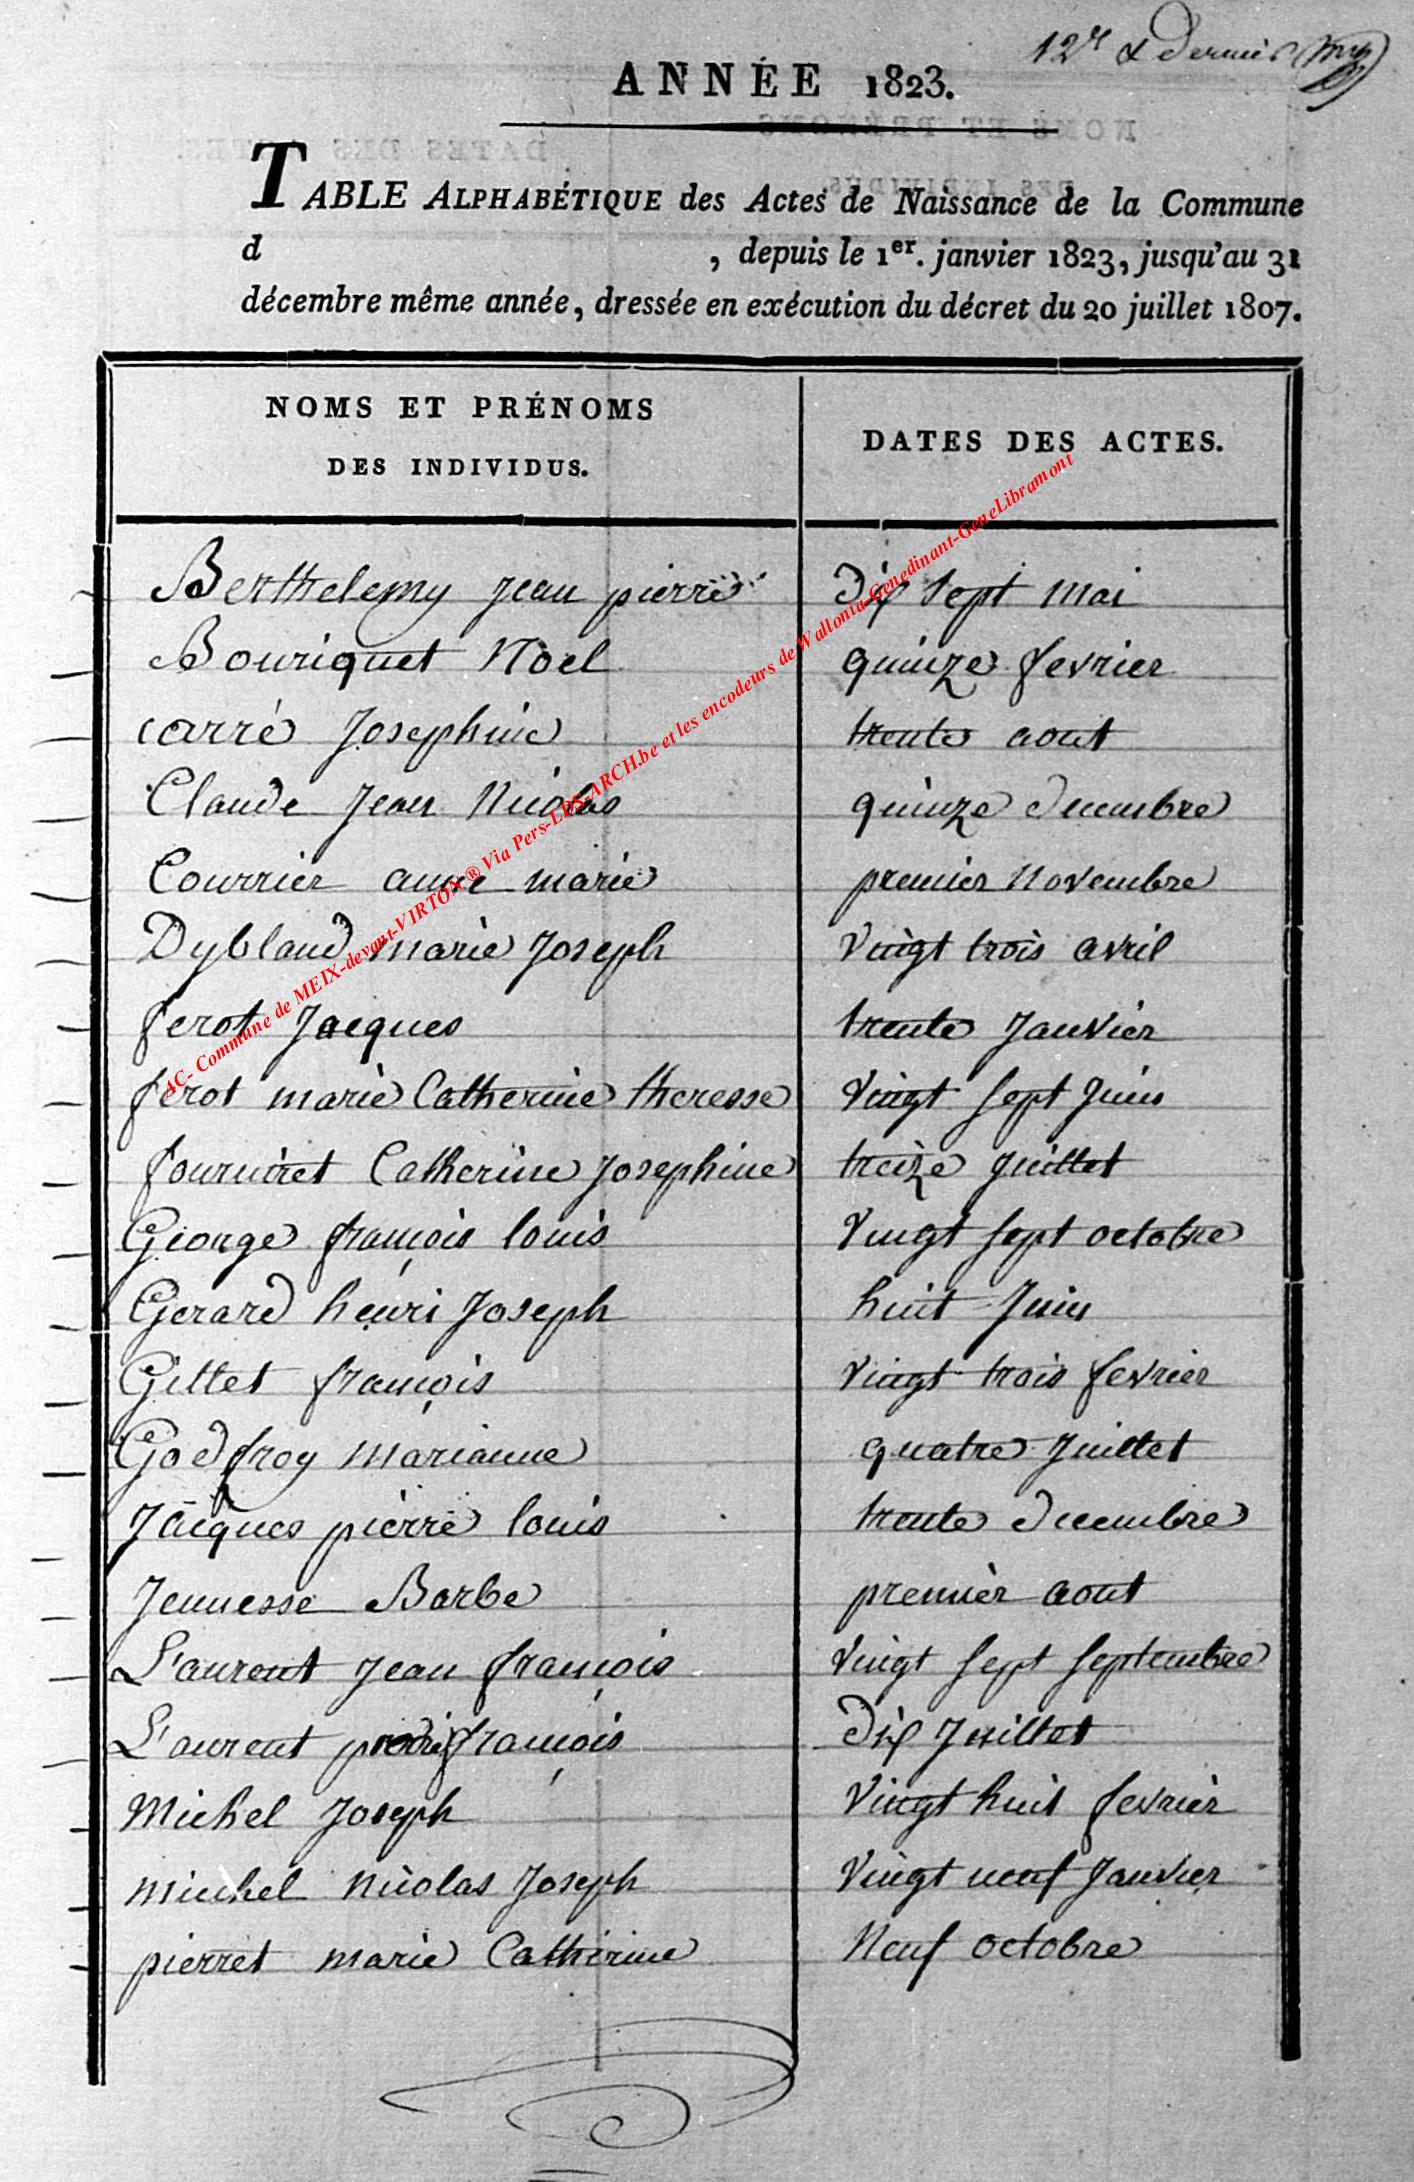 12e & dernier
ANNÉE 1823.
TABLE ALPHABÉTIQUE des Actes de Naissance de la Commune
d , depuis le 1er. janvier 1823, jusqu'au 31
décembre même année, dressée en exécution du décret du 20 juillet 1807.
NOMS ET PRÉNOMS
DES INDIVIDUS.
DATES DES ACTES.
Berthelemy jean pierre Dix sept mai
Bouriquet Noel quinze fevrier
carré Josephine trente aout
Claude Jean Nicolas quinze decembre
Courrier anne marie premier Novembre
Dybland marie Joseph Vingt trois avril
ferot Jacques trente Janvier
ferot marie Catherine theresse Vingt sept Juin
fourniret Catherine Josephine treize juillet
George françois louis Vingt sept octobre
Gerard henri Joseph huit Juin
Gillet françois Vingt trois fevrier
Godfroy marianne quatre Juillet
Jacques pierre louis trente decembre
Jeunesse Barbe premier aout
Laurent Jean françois Vingt sept septembre
Laurent françois Dix Juillet
Michel Joseph Vingt huit fevrier
michel nicolas Joseph Vingt neuf Janvier
pierret marie Catherine Neuf octobre
AC- Commune de MEIX-devant-VIRTON ® Via Pers-LDS-ARCH.be et les encodeurs de Wallonia-Genedinant-GeneLibramont